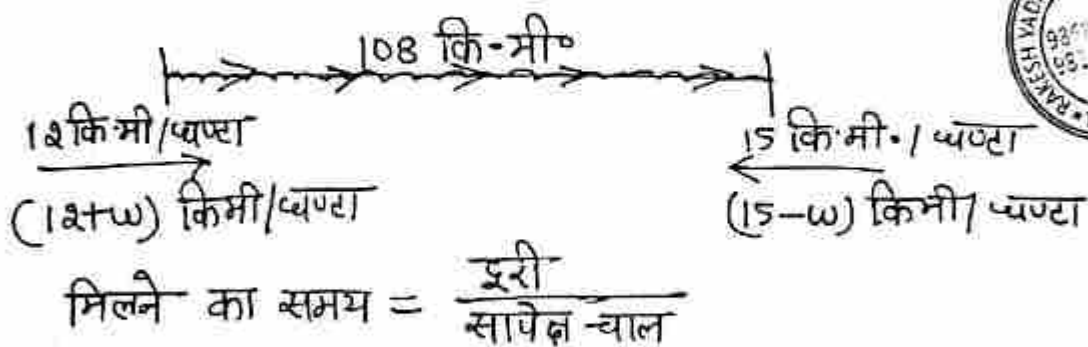 108 कि॰मी॰
12 कि॰मी/घण्टा
15 कि॰मी॰/घण्टा
(12+w) किमी/घण्टा
(15-w) किमी/घण्टा
मिलने का समय = दूरी / सापेक्ष चाल
RAKESH YAD